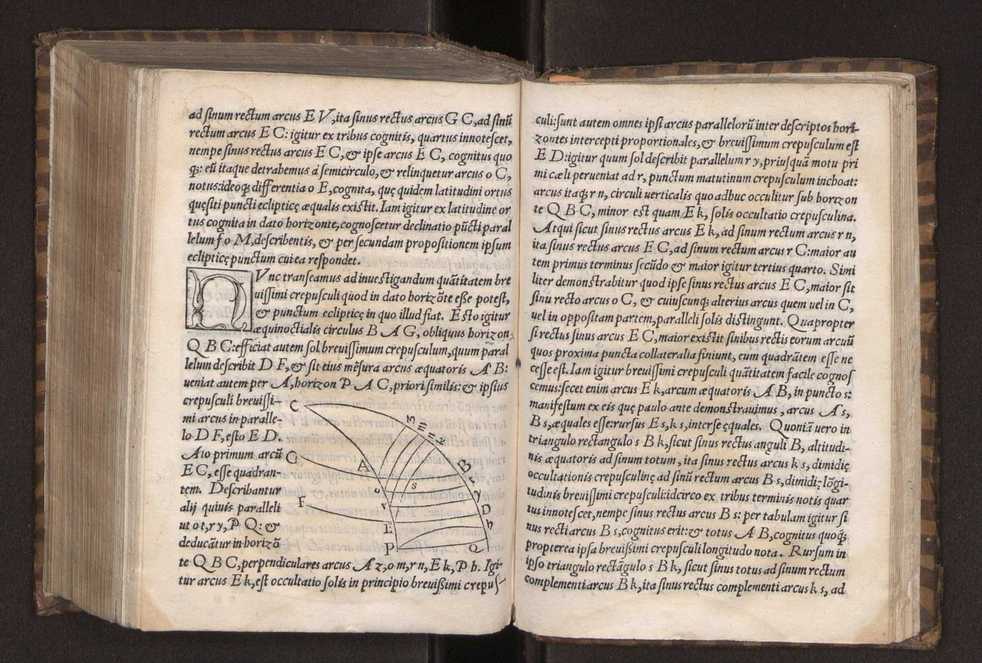 ad sinum rectum arcus E V, ita sinus rectus arcus G C, ad sinũ
rectum arcus E C: igitur ex tribus cognitis, quartus innotescet,
nempe sinus rectus arcus E C, & ipse arcus E C, cognitus quo
q;: eũ itaque detrabemus à semicirculo, & relinquetur arcus o C,
notus: ideoq; differentia o E, cognita, quę quidem latitudini ortus
quęsiti puncti eclipticę æqualis existit. Iam igitur ex latitudine or
tus cognita in dato horizonte, cognoscetur declinatio pũcti paral
lelum f o M, describentis, & per secundam propositionem ipsum
eclipticę punctum cui ea respondet.
NVnc transeamus ad inuestigandum quãtitatem bre
uissimi crepusculi quod in dato horizõte esse potest,
& punctum eclipticę in quo illud fiat. Esto igitur
æquinoctialis circulus B A G, obliquus horizon
Q B C: efficiat autem sol breuissimum crepusculum, quum paral
lelum describit D F, & sit eius mẽsura arcus æquatoris A B:
ueniat autem per A, horizon P A C, priori similis: & ipsius
crepusculi breuissi-
mi arcus in paralle-
lo D F, esto E D.
Aio primum arcũ
E C, esse quadran-
tem. Describantur
alij quiuis paralleli
ut o t, r y, P Q: &
deducãtur in horizõ
te Q B C, perpendiculares arcus A z, o m, r n, E k, P h. Igi-
tur arcus E k, est occultatio solis in principio breuissimi crepus-
C
M
m
z
n
k
G
A
B
t
o
s
y
F
r
D
E
h
P
Q
culi: sunt autem omnes ipsi arcus parallelorũ inter descriptos hori-
zontes intercepti proportionales, & breuissimum crepusculum est
E D: igitur quum sol describit parallelum r y, priusquã motu pri
mi cæli perueniat ad r, punctum matutinum crepusculum inchoat:
arcus itaq; r n, circuli uerticalis quo adhuc occulitur sub horizon
te Q B C, minor est quàm E k, solis occultatio crepusculina.
Atqui sicut sinus rectus arcus E k, ad sinum rectum arcus r n,
ita sinus rectus arcus E C, ad sinum rectum arcus r C: maior au
tem primus terminus secũdo & maior igitur tertius quarto. Simi
liter demonstrabitur quod ipse sinus rectus arcus E C, maior sit
sinu recto arcus o C, & cuiuscunq; alterius arcus quem uel in C,
uel in oppositam partem, paralleli solis distingunt. Quapropter
si rectus sinus arcus E C, maior existit sinibus rectis eorum arcuũ
quos proxima puncta collateralia finiunt, eum quadrãtem esse ne
cesse est. Iam igitur breuissimi crepusculi quãtitatem facile cognos
cemus: secet enim arcus E k, arcum æquatoris A B, in puncto s:
manifestum ex eis quę paulo ante demonstrauimus, arcus A s,
B s, æquales esse: rursus E s, k s, inter se ęquales. Quoniã uero in
triangulo rectangulo s B k, sicut sinus rectus anguli B, altitudi-
nis æquatoris ad sinum totum, ita sinus rectus arcus k s, dimidię
occultationis crepusculinę ad sinũ rectum arcus B s, dimidię lõgi-
tudinis breuissimi crepusculi: idcirco ex tribus terminis notis quar
tus innotescet, nempe sinus rectus arcus B s: per tabulam igitur si
nus recti arcus B s, cognitus erit: & totus A B, cognitus quoq;
propterea ipsa breuissimi crepusculi longitudo nota. Rursum in
ipso triangulo rectãgulo s B k, sicut sinus totus ad sinum rectum
complementi arcus B k, ita sinus rectus complementi arcus k s, ad